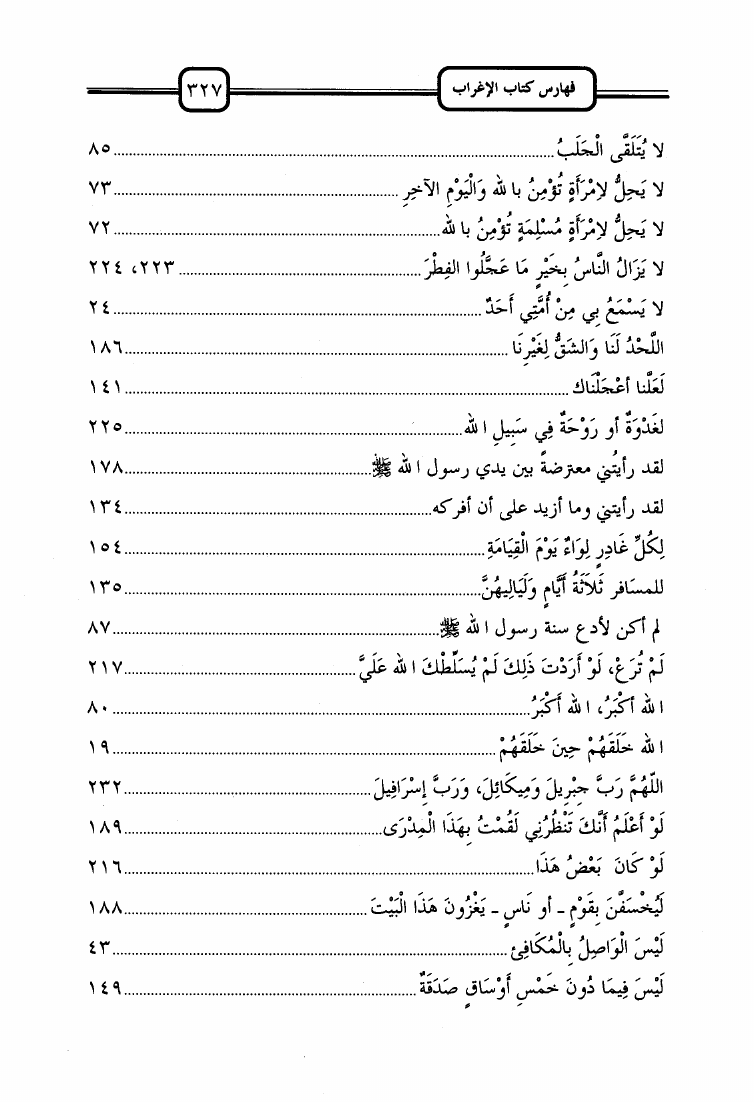 فهارس كتاب الإغراب ٣٢٧
لا يُتَلَقَّى الْجَلَبُ ........ ٨٥
لا يَحِلُّ لاِمْرَأَةٍ تُؤْمِنُ بالله وَالْيَوْمِ الآخِرِ ........ ٧٣
لا يَحِلُّ لاِمْرَأَةٍ مُسْلِمَةٍ تُؤْمِنُ بالله ........ ٧٢
لا يَزَالُ النَّاسُ بِخَيْرٍ مَا عَجَّلُوا الفِطْرَ ........ ٢٢٣، ٢٢٤
لا يَسْمَعُ بِي مِنْ أُمَّتِي أَحَدٌ ........ ٢٤
اللَّحْدُ لَنَا وَالشَقُّ لِغَيْرِنَا ........ ١٨٦
لَعَلَّنا أعْجَلْنَاك ........ ١٤١
لغَدْوَةٌ أو رَوْحَةٌ فِي سَبِيلِ الله ........ ٢٢٥
لقد رأيتُني معترضةً بين يدي رسول الله ﷺ ........ ١٧٨
لقد رأيتني وما أزيد على أن أفركه ........ ١٣٤
لِكُلِّ غَادِرٍ لِوَاءٌ يَوْمَ الْقِيَامَةِ ........ ١٥٤
للمسَافر ثَلاَثَةُ أَيَّامٍ وَلَيَالِيهُنَّ ........ ١٣٥
لم أكن لأدع سنة رسول الله ﷺ ........ ٨٧
لَمْ تُرَعْ، لَوْ أَرَدْتَ ذَلِكَ لَمْ يُسَلِّطْكَ الله عَلَيَّ ........ ٢١٧
الله أكْبَرُ، الله أَكْبَرُ ........ ٨٠
الله خَلَقَهُمْ حِينَ خَلَقَهُمْ ........ ١٩
اللّهُمَّ رَبَّ جِبْرِيلَ وَمِيكَائِلَ، وَرَبَّ إِسْرَافِيلَ ........ ٢٣٢
لَوْ أَعْلَمُ أَنَّكَ تَنْظُرُنِي لَقُمْتُ بِهَذَا الْمِدْرَى ........ ١٨٩
لَوْ كَانَ بَعْضُ هَذَا ........ ٢١٦
لَيُخْسَفَنَّ بِقَوْمٍ - أو نَاسٍ - يَغْزُونَ هَذَا الْبَيْتَ ........ ١٨٨
لَيْسَ الْوَاصِلُ بِالْمُكَافِئ ........ ٤٣
لَيْسَ فِيمَا دُونَ خَمْسِ أَوْسَاقٍ صَدَقَةٌ ........ ١٤٩